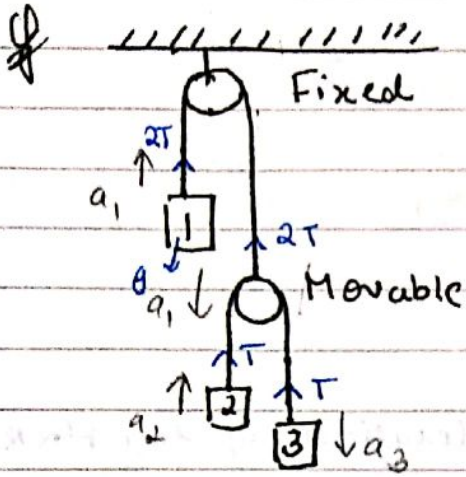 Q
Fixed
2T
a₁
1
2T
θ
a₁
Movable
T
T
a₂
2
3
a₃